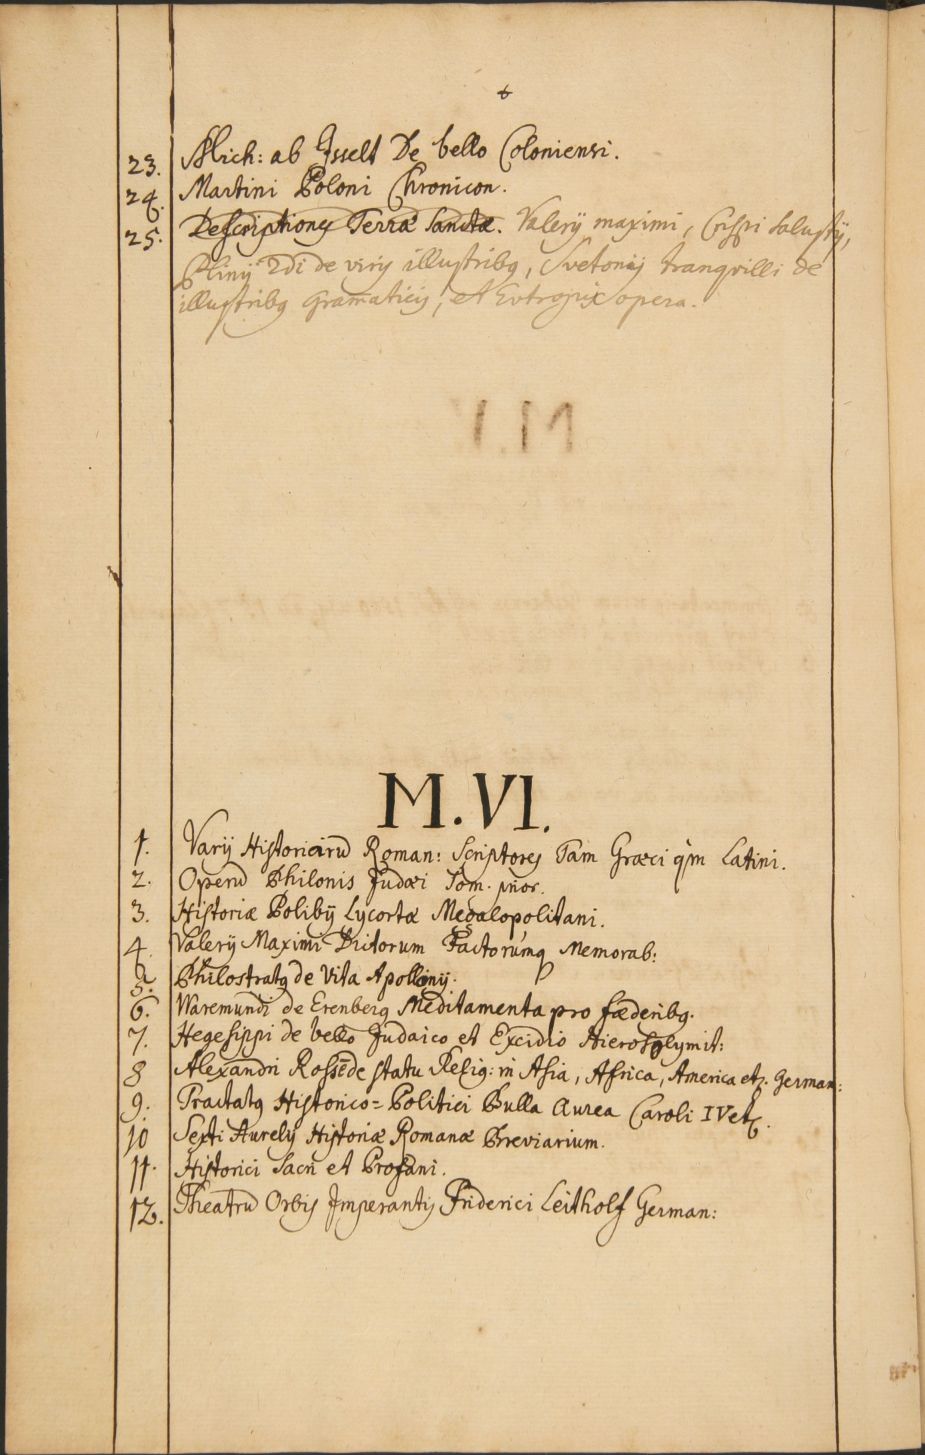 23. Mich: ab Jsselt De bello Coloniensi.
24. Martini Poloni Chronicon.
25. Descriptiones Terræ Sanctæ. Valerij maximi, Crispi Salustij,
Plinij 2di de viris illustribq, Svetonij tranqvilli de
illustribq gramaticis, et Evtropix opera.
M.VI.
1. Varij Historicorū Roman: Scriptores Tam Græci qm Latini.
2. Operū Philonis Judæi Tom. prior.
3. Historiæ Polibij Lycortæ Megalopolitani.
4. Valerij Maximi Dictorum Factorumq Memorab:
5. Philostratq de Vita Apollonij.
6. Waremundi de Erenberg Meditamenta pro fœderibq.
7. Hegesippi de bello Judaico et Excidio Hierosolymit:
8 Alexandri Rossē de statu Relig: in Asia, Africa, America etc. German:
9. Tractatq Historico=Politici Bulla Aurea Caroli IV etc.
10 Sexti Aurelij Historiæ Romanæ Breviarium.
11. Historici Sacri et Profani.
12. Theatrū Orbis Imperantis Friderici Leitholf German: